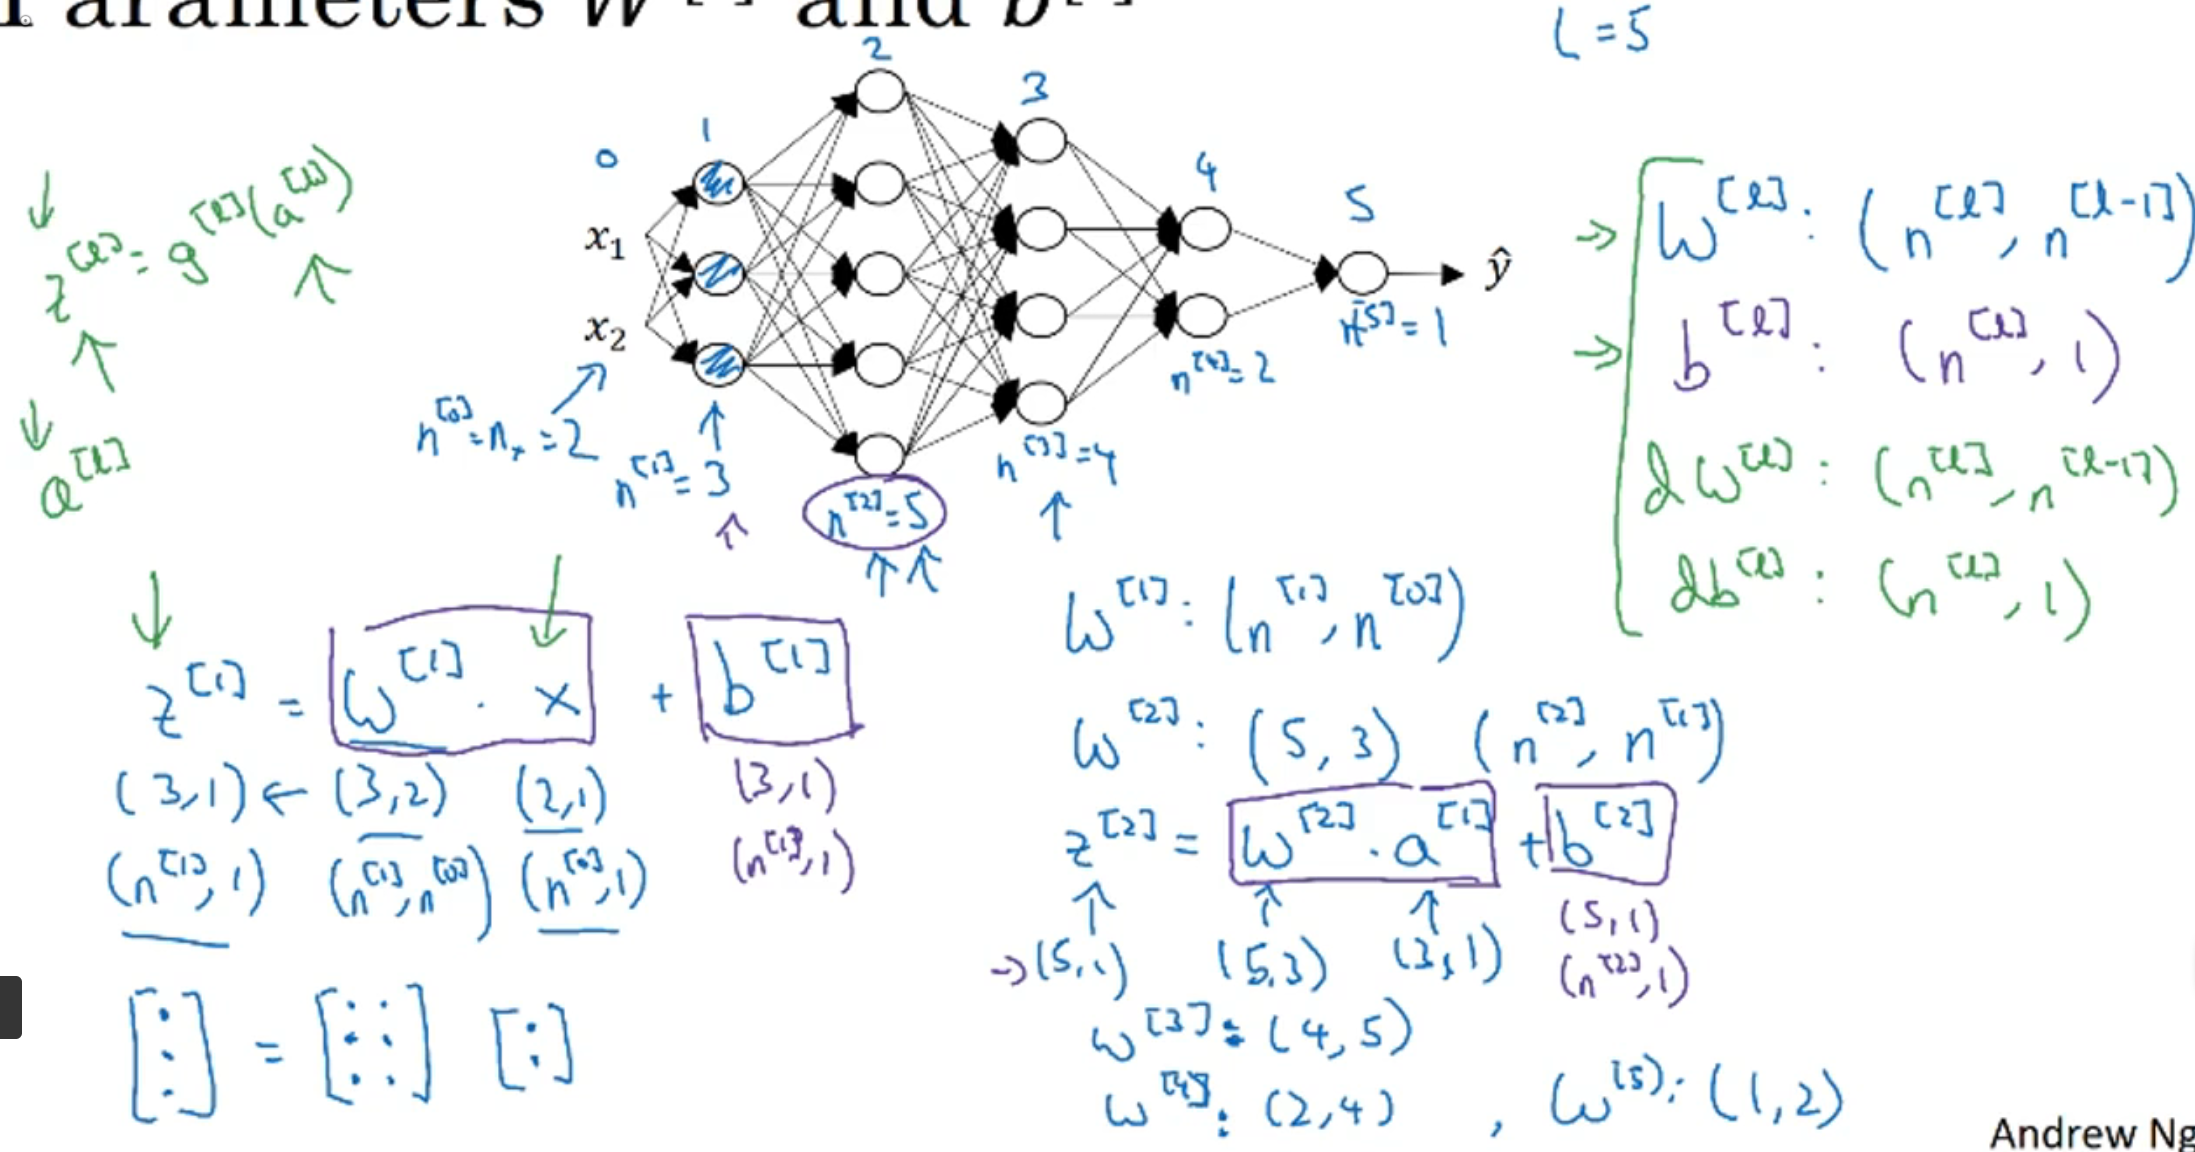 Parameters W[ ] and b[ ]
L = 5
0 1 2 3 4 5
x₁
x₂
ŷ
z[l] = g[l](a[l])
a[l]
n[0] = nₓ = 2
n[1] = 3
n[2] = 5
n[3] = 4
n[4] = 2
n[5] = 1
W[l] : (n[l], n[l-1])
b[l] : (n[l], 1)
dW[l] : (n[l], n[l-1])
db[l] : (n[l], 1)
z[1] = W[1] · x + b[1]
(3,1) ← (3,2) (2,1) (3,1)
(n[1], 1) (n[1], n[0]) (n[0], 1) (n[1], 1)
W[1] : (n[1], n[0])
W[2] : (5, 3) (n[2], n[1])
z[2] = W[2] · a[1] + b[2]
→ (5,1) (5,3) (3,1) (5,1)
(n[2], 1)
W[3] : (4, 5)
W[4] : (2,4) , W[5] : (1,2)
Andrew Ng